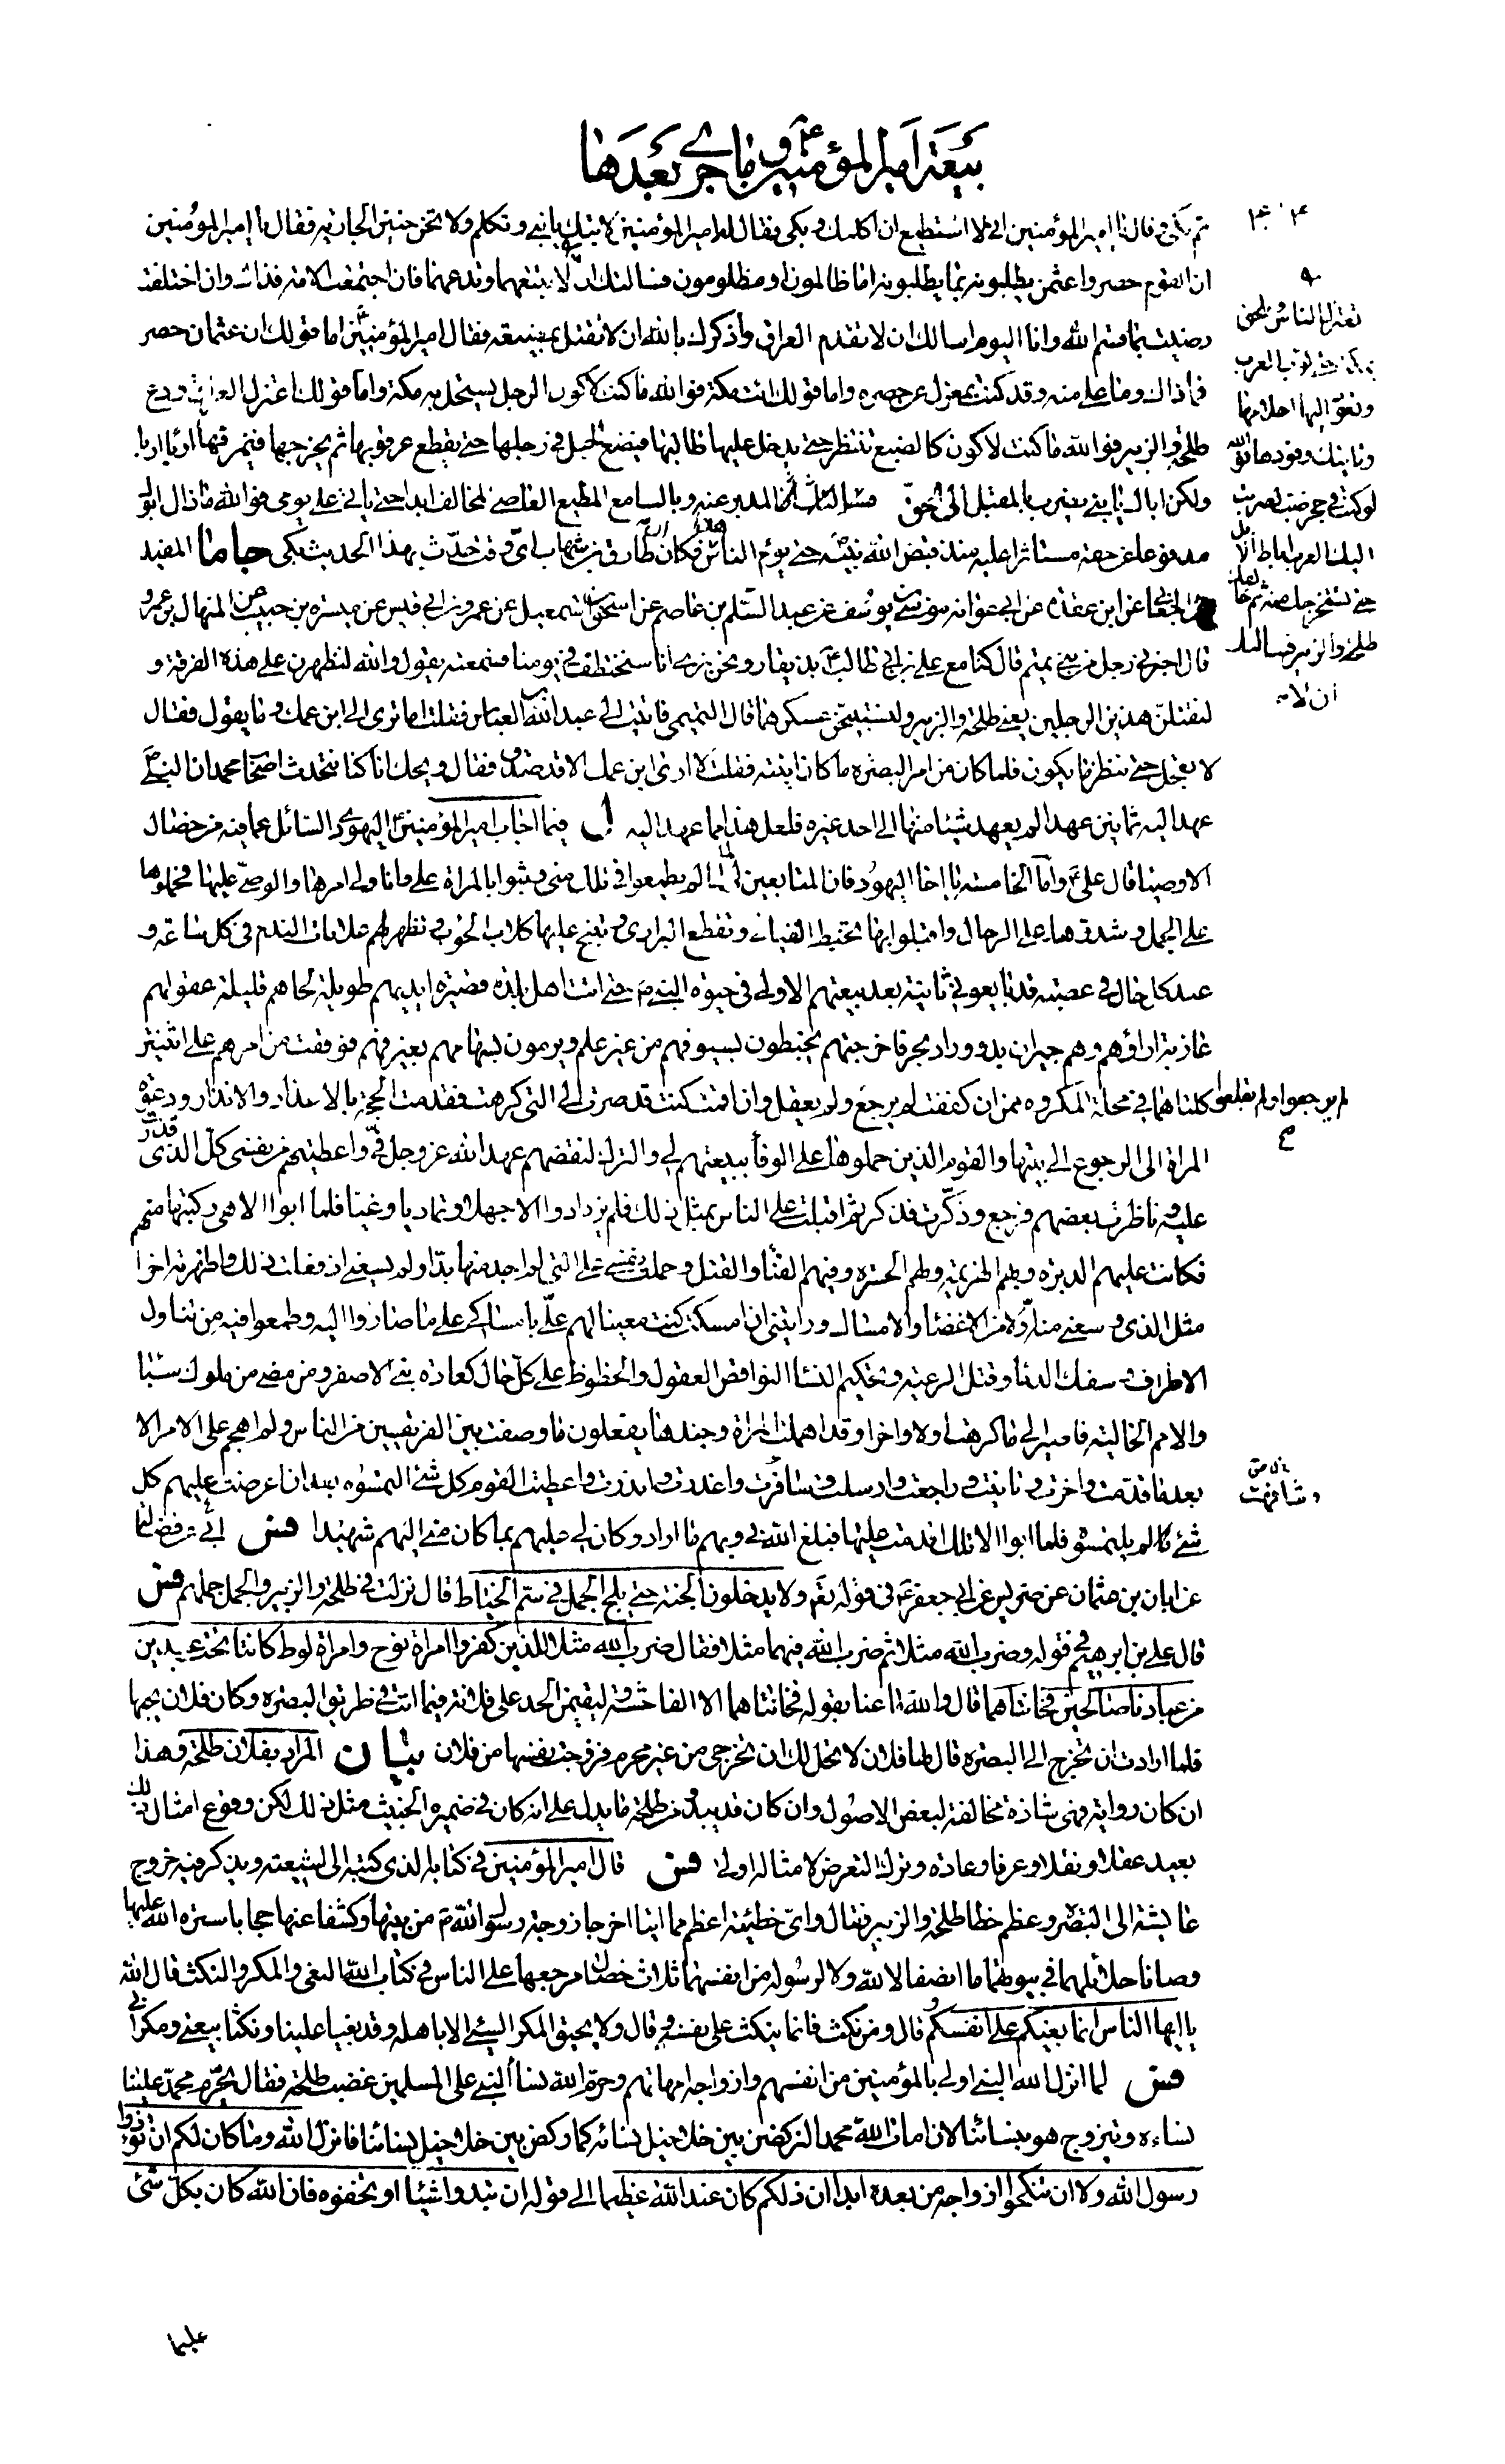 بيعة امير المؤمنين ع و ما جرى بعدها
ثم بكى فقال يا امير المؤمنين اني لا استطيع ان اكلمك و بكى فقال له امير المؤمنين لا تبك يا بني و تكلم ولا تحن حنين الجارية فقال يا امير المؤمنين
ان القوم حصروا عثمن يطلبونه بما يطلبونه اما ظالمون او مظلومون فسالتك
رضيت بما قسم الله وانا اليوم اسالك ان لا تقدم العراق واذكرك بالله ان لا تقتل بمضيعة فقال امير المؤمنين اما قولك ان عثمان حصر
فما ذاك وما علي منه وقد كنت بمعزل عن حصره واما قولك ائت مكة فوالله ما كنت لاكون الرجل يستحل به مكة واما قولك اعتزل العراق ودع
طلحة والزبير فوالله ما كنت لاكون كالضبع تنتظر حتى يدخل عليها طالبها فيضع الحبل في رجلها حتى يقطع عرقوبها ثم يخرجها فيمزقها اربا اربا
ولكن اباك يا بني يضرب بالمقبل الى الحق المدبر عنه وبالسامع المطيع العاصي المخالف ابدا حتى ياتي علي يومي فوالله ما زال ابوك
مدفوعا عن حقه مستاثرا عليه منذ قبض الله نبيه ص حتى يوم الناس هذا فكان طارق بن شهاب اي وقت حدث بهذا الحديث بكى جا ما المفيد
الجعابي عن ابن عقدة عن ابي عوانة موسى بن يوسف عن عبد السلم بن عاصم عن اسحق بن اسمعيل عن عمرو بن ابي قيس عن ميسرة بن حبيب عن المنهال بن عمرو
قال اخبرني رجل من بني تميم قال كنا مع علي بن ابي طالب ع بذي قار ونحن نرى انا سنختطف في يومنا فسمعته يقول والله لنظهرن على هذه الفرقة و
لنقتلن هذين الرجلين يعني طلحة والزبير ولنستبيحن عسكرهما قال التميمي فاتيت الى عبد الله بن العباس فقلت اما ترى الى ابن عمك و ما يقول فقال
لا تعجل حتى تنظر ما يكون فلما كان من امر البصرة ما كان اتيته فقلت لا ارى ابن عمك الا قد صدق فقال ويحك انا كنا نتحدث اصحاب محمد ان النبي ص
عهد اليه ثمانين عهدا لم يعهد شيئا منها الى احد غيره فلعل هذا مما عهد اليه ل فيما اجاب امير المؤمنين ع اليهودي السائل عما فيه من خصال
الاوصيا قال علي ع واما الخامسة يا اخا اليهود فان المتابعين لي لما لم يطمعوا في تلك مني وثبوا بالمراة علي وانا ولي امرها والوصي عليها فحملوها
على الجمل وشدوها على الرحال واقبلوا بها تخبط الفيافي وتقطع البراري و تنبح عليها كلاب الحوب و تظهر لهم علامات الندم في كل ساعة و
عند كل حال في عصبة قد بايعوني ثانية بعد بيعتهم الاولى في حيوة النبي ص حتى اتت اهل بلدة قصيرة ايديهم طويلة لحاهم قليلة عقولهم
عازبة اراؤهم وهم جيران بدو ووراد بحر فاخرجتهم يخبطون بسيوفهم من غير علم ويرمون بسهامهم بغير فهم فوقفت من امرهم على اثنتين
كلتاهما في محلة المكروه ممن ان كففت لم يرجع ولم يعقل وان اقمت كنت قد صرت الى التي كرهت فقدمت الحجة بالاعذار والانذار ودعوة
المراة الى الرجوع الى بيتها والقوم الذين حملوها على الوفا ببيعتهم لي والترك لنقضهم عهد الله عز وجل في واعطيتهم من نفسي كل الذي قدرت
عليه و ناظرت بعضهم فرجع وذكرت فذكر ثم اقبلت على الناس بمثل ذلك فلم يزدادوا الا جهلا وتماديا وغيا فلما ابوا الا هي ركبتها منهم
فكانت عليهم الدبرة وبهم الهزيمة ولهم الحسرة وفيهم الفنا والقتل وحملت نفسي على التي لم اجد منها بدا ولم يسعني اذ فعلت ذلك واظهرته اخرا
مثل الذي وسعني منه اولا من الاغضا والامساك ورايتني ان امسكت كنت معينا لهم علي بامساكي على ما صاروا اليه وطمعوا فيه من تناول
الاطراف و سفك الدما وقتل الرعية وتحكيم النسا النواقص العقول والحظوظ على كل حال كعادة بني الاصفر ومن مضى من ملوك سبا
والامم الخالية فاصير الى ما كرهت اولا واخرا وقد اهملت المراة وجندها يفعلون ما وصفت بين الفريقين من الناس ولم اهجم على الامر الا
بعد ما قدمت واخرت و تانيت و راجعت وارسلت و سافرت واعذرت و انذرت واعطيت القوم كل شئ التمسوه بعد ان عرضت عليهم كل
شئ لم يلتمسوه فلما ابوا الا تلك اقدمت عليها فبلغ الله بي وبهم ما اراد وكان لي عليهم بما كان مني اليهم شهيدا فس ابي عن فضالة
عن ابان بن عثمان عن ضريس عن ابي جعفر ع في قوله تعالى ولا يدخلون الجنة حتى يلج الجمل في سم الخياط قال نزلت في طلحة والزبير والجمل جملهم فس
قال علي بن ابراهيم في قوله وضرب الله مثلا ثم ضرب الله فيهما مثلا فقال ضرب الله مثلا للذين كفروا امراة نوح وامراة لوط كانتا تحت عبدين
من عبادنا صالحين فخانتاهما قال والله ما عنا بقوله فخانتاهما الا الفاحشة وليقيمن الحد على فلانة فيما اتت في طريق البصرة وكان فلان يحبها
فلما ارادت ان تخرج الى البصرة قال لها فلان لا يحل لك ان تخرجي من غير محرم فزوجت نفسها من فلان بيان المراد بفلان طلحة وهذا
ان كان رواية فهي شاذة مخالفة لبعض الاصول وان كان قد يبدو من طلحة ما يدل على انه كان في ضميره الخبيث مثل ذلك لكن وقوع امثال ذلك
بعيد عقلا ونقلا وعرفا وعادة وترك التعرض لامثاله اولى فس قال امير المؤمنين في كتابه الذي كتبه الى شيعته ويذكر فيه خروج
عايشة الى البصرة وعظم خطا طلحة والزبير فقال واي خطيئة اعظم مما اتيا اخرجا زوجة رسول الله ص من بيتها وكشفا عنها حجابا ستره الله عليها
وصانا حلائلهما في بيوتهما ما انصفا لا لله ولا لرسوله من انفسهما ثلاث خصال مرجعها على الناس في كتاب الله البغي والمكر والنكث قال الله
يا ايها الناس انما بغيكم على انفسكم وقال ومن نكث فانما ينكث على نفسه وقال ولا يحيق المكر السيئ الا باهله وقد بغيا علينا ونكثا بيعتي ومكرا بي
فس لما انزل الله النبي اولى بالمؤمنين من انفسهم وازواجه امهاتهم وحرم الله نسا النبي على المسلمين غضب طلحة فقال يحرم محمد علينا
نساءه ويتزوج هو بنسائنا لان امات الله محمدا لنركضن بين خلاخيل نسائه كما ركض بين خلاخيل نسائنا فانزل الله وما كان لكم ان تؤذوا
رسول الله ولا ان تنكحوا ازواجه من بعده ابدا ان ذلكم كان عند الله عظيما الى قوله ان تبدوا شيئا او تخفوه فان الله كان بكل شئ
عليما
تعتزل الناس
العرب
وتعود اليها احلامها
وتاتيك وفودها فوالله
لو كنت في جحر ضب لضربت
اليك العرب اباط الابل
حتى تستخرجك منه ثم
طلحة والزبير فسالتك
ان لا
لم يرجعوا ولم يقلعوا
وشافهت